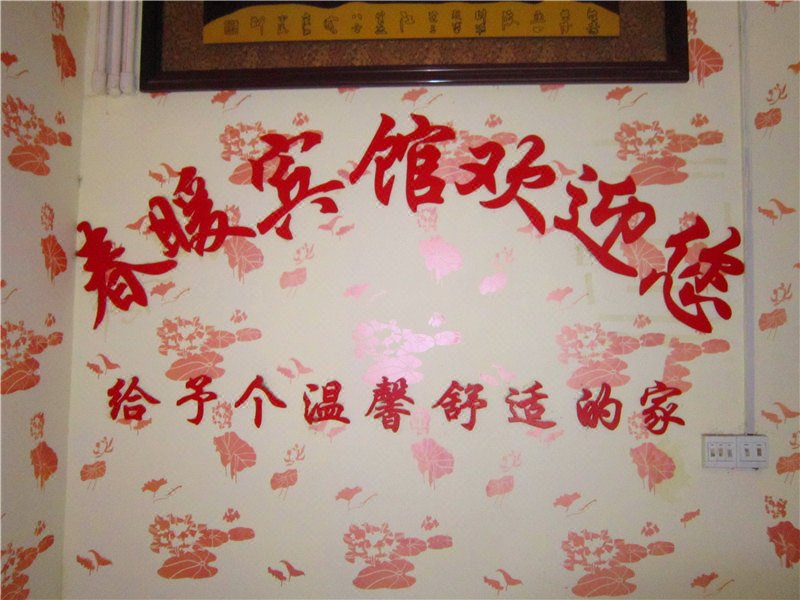 春暖宾馆欢迎您
给予个温馨舒适的家